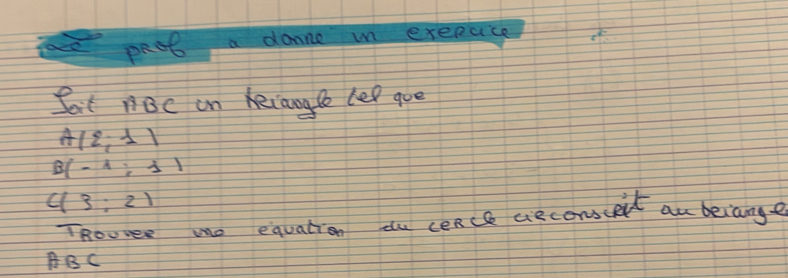 Le prof a donné un exercice
Soit ABC un triangle tel que
A(2; 1)
B(-1; 3)
C(3; 2)
Trouver une équation du cercle circonscrit au triangle
ABC